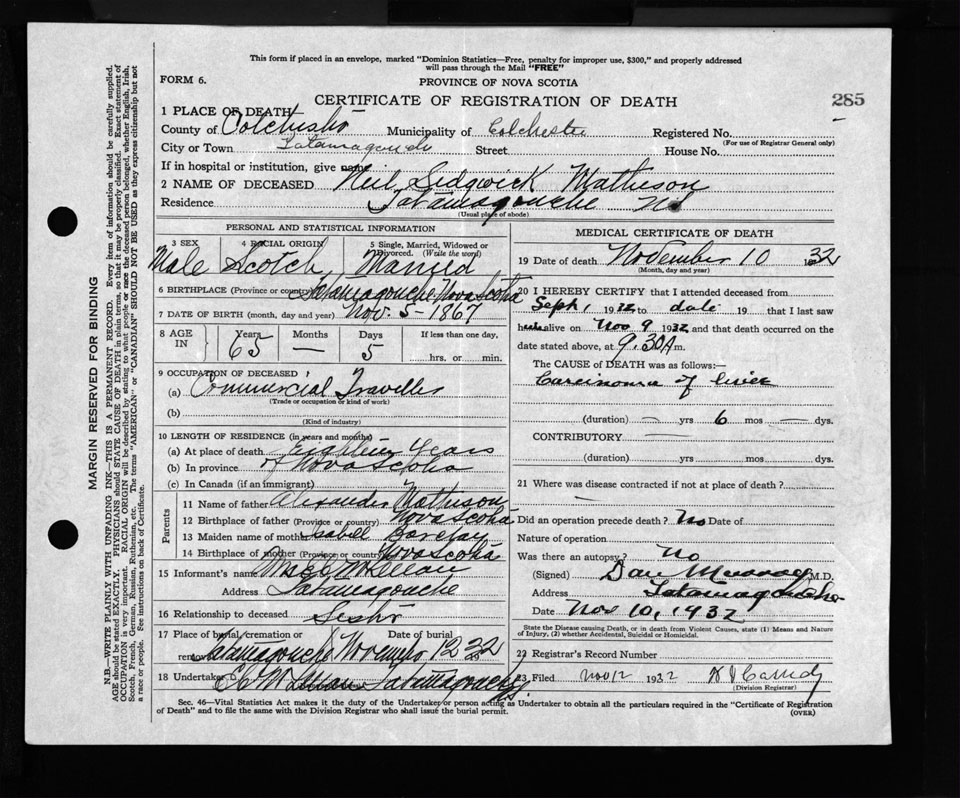 This form if placed in an envelope, marked "Dominion Statistics—Free, penalty for improper use, $300," and properly addressed
will pass through the Mail "FREE"
FORM 6.
PROVINCE OF NOVA SCOTIA
CERTIFICATE OF REGISTRATION OF DEATH
285
1 PLACE OF DEATH
County of Colchester Municipality of Colchester Registered No.
(For use of Registrar General only)
City or Town Tatamagouche Street House No.
If in hospital or institution, give name
2 NAME OF DECEASED Neil Sedgwick Matheson
Residence Tatamagouche NS
(Usual place of abode)
PERSONAL AND STATISTICAL INFORMATION
3 SEX 4 RACIAL ORIGIN 5 Single, Married, Widowed or Divorced. (Write the word)
Male Scotch Married
6 BIRTHPLACE (Province or country) Tatamagouche Nova Scotia
7 DATE OF BIRTH (month, day and year) Nov. 5 - 1867
8 AGE IN Years Months Days If less than one day,
65 — 5 hrs. or min.
9 OCCUPATION OF DECEASED
(a) Commercial Traveller
(Trade or occupation or kind of work)
(b)
(Kind of industry)
10 LENGTH OF RESIDENCE (in years and months)
(a) At place of death Years
(b) In province Nova Scotia
(c) In Canada (if an immigrant)
Parents
11 Name of father Alexander Matheson
12 Birthplace of father (Province or country) Nova Scotia
13 Maiden name of mother Isabell Barclay
14 Birthplace of mother (Province or country) Nova Scotia
15 Informant's name
Address Tatamagouche
16 Relationship to deceased Sister
17 Place of burial, cremation or removal Date of burial
Tatamagouche November 12 32
18 Undertaker Tatamagouche NS.
MEDICAL CERTIFICATE OF DEATH
19 Date of death November 10 1932
(Month, day and year)
20 I HEREBY CERTIFY that I attended deceased from
Sept 1 1932 to date 19 that I last saw
h alive on Nov 9 1932 and that death occurred on the
date stated above, at 9.30 A m.
The CAUSE OF DEATH was as follows:—
Carcinoma of
(duration) — yrs 6 mos — dys.
CONTRIBUTORY —
(duration) yrs mos dys.
21 Where was disease contracted if not at place of death?
Did an operation precede death? No Date of
Nature of operation
Was there an autopsy? No
(Signed) Dan Murray M.D.
Address Tatamagouche
Date Nov 10, 1932
State the Disease causing Death, or in death from Violent Causes, state (1) Means and Nature
of Injury, (2) whether Accidental, Suicidal or Homicidal.
22 Registrar's Record Number
23 Filed Nov 12 1932
(Division Registrar)
Sec. 46—Vital Statistics Act makes it the duty of the Undertaker or person acting as Undertaker to obtain all the particulars required in the "Certificate of Registration
of Death" and to file the same with the Division Registrar who shall issue the burial permit.
(OVER)
MARGIN RESERVED FOR BINDING
N.B.—WRITE PLAINLY WITH UNFADING INK—THIS IS A PERMANENT RECORD. Every item of information should be carefully supplied.
AGE should be stated EXACTLY. PHYSICIANS should STATE CAUSE OF DEATH in plain terms, so that it may be properly classified. Exact statement of
OCCUPATION is very important. RACIAL ORIGIN will be described by stating to what people or race the deceased person belonged, whether English, Irish,
Scotch, French, German, Russian, Ruthenian, etc. The terms "AMERICAN" or "CANADIAN" SHOULD NOT BE USED as they express citizenship but not
a race or people. See instructions on back of Certificate.